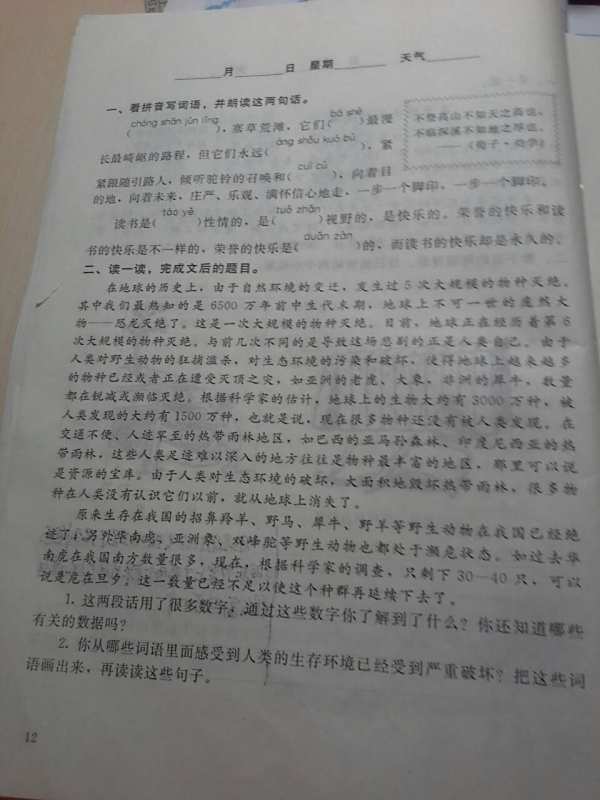 月 日 星期 天气
一、看拼音写词语，并朗读这两句话。
chóng shān jùn lǐng bá shè
( )，塞草荒滩，它们( )最漫
长最崎岖的路程，但它们永远( )，紧
áng shǒu kuò bù
紧跟随引路人，倾听驼铃的召唤和( )，向着目
cuī cù
的地，向着未来，庄严、乐观、满怀信心地走，一步一个脚印，一步一个脚印。
不登高山不知天之高也，
不临深溪不知地之厚也。
——《荀子·劝学》
táo yě tuò zhǎn
读书是( )性情的，是( )视野的，是快乐的。荣誉的快乐和读
duǎn zàn
书的快乐是不一样的，荣誉的快乐是( )的，而读书的快乐却是永久的。
二、读一读，完成文后的题目。
在地球的历史上，由于自然环境的变迁，发生过5次大规模的物种灭绝。
其中我们最熟知的是6500万年前中生代末期，地球上不可一世的庞然大
物——恐龙灭绝了。这是一次大规模的物种灭绝。目前，地球正在经历着第6
次大规模的物种灭绝。与前几次不同的是导致这场悲剧的正是人类自己。由于
人类对野生动物的狂捕滥杀，对生态环境的污染和破坏，使得地球上越来越多
的物种已经或者正在遭受灭顶之灾，如亚洲的老虎、大象，非洲的犀牛，数量
都在锐减或濒临灭绝。根据科学家的估计，地球上的生物大约有3000万种，被
人类发现的大约有1500万种，也就是说，现在很多物种还没有被人类发现。在
交通不便、人迹罕至的热带雨林地区，如巴西的亚马孙森林、印度尼西亚的热
带雨林，这些人类足迹难以深入的地方往往是物种最丰富的地区，那里可以说
是资源的宝库。由于人类对生态环境的破坏，大面积地毁坏热带雨林，很多物
种在人类没有认识它们以前，就从地球上消失了。
原来生存在我国的招鼻羚羊、野马、犀牛、野羊等野生动物在我国已经绝
迹了；另外华南虎、亚洲象、双峰驼等野生动物也都处于濒危状态。如过去华
南虎在我国南方数量很多，现在，根据科学家的调查，只剩下30—40只，可以
说是危在旦夕；这一数量已经不足以使这个种群再延续下去了。
1. 这两段话用了很多数字，通过这些数字你了解到了什么？你还知道哪些
有关的数据吗？
2. 你从哪些词语里面感受到人类的生存环境已经受到严重破坏？把这些词
语画出来，再读读这些句子。
12